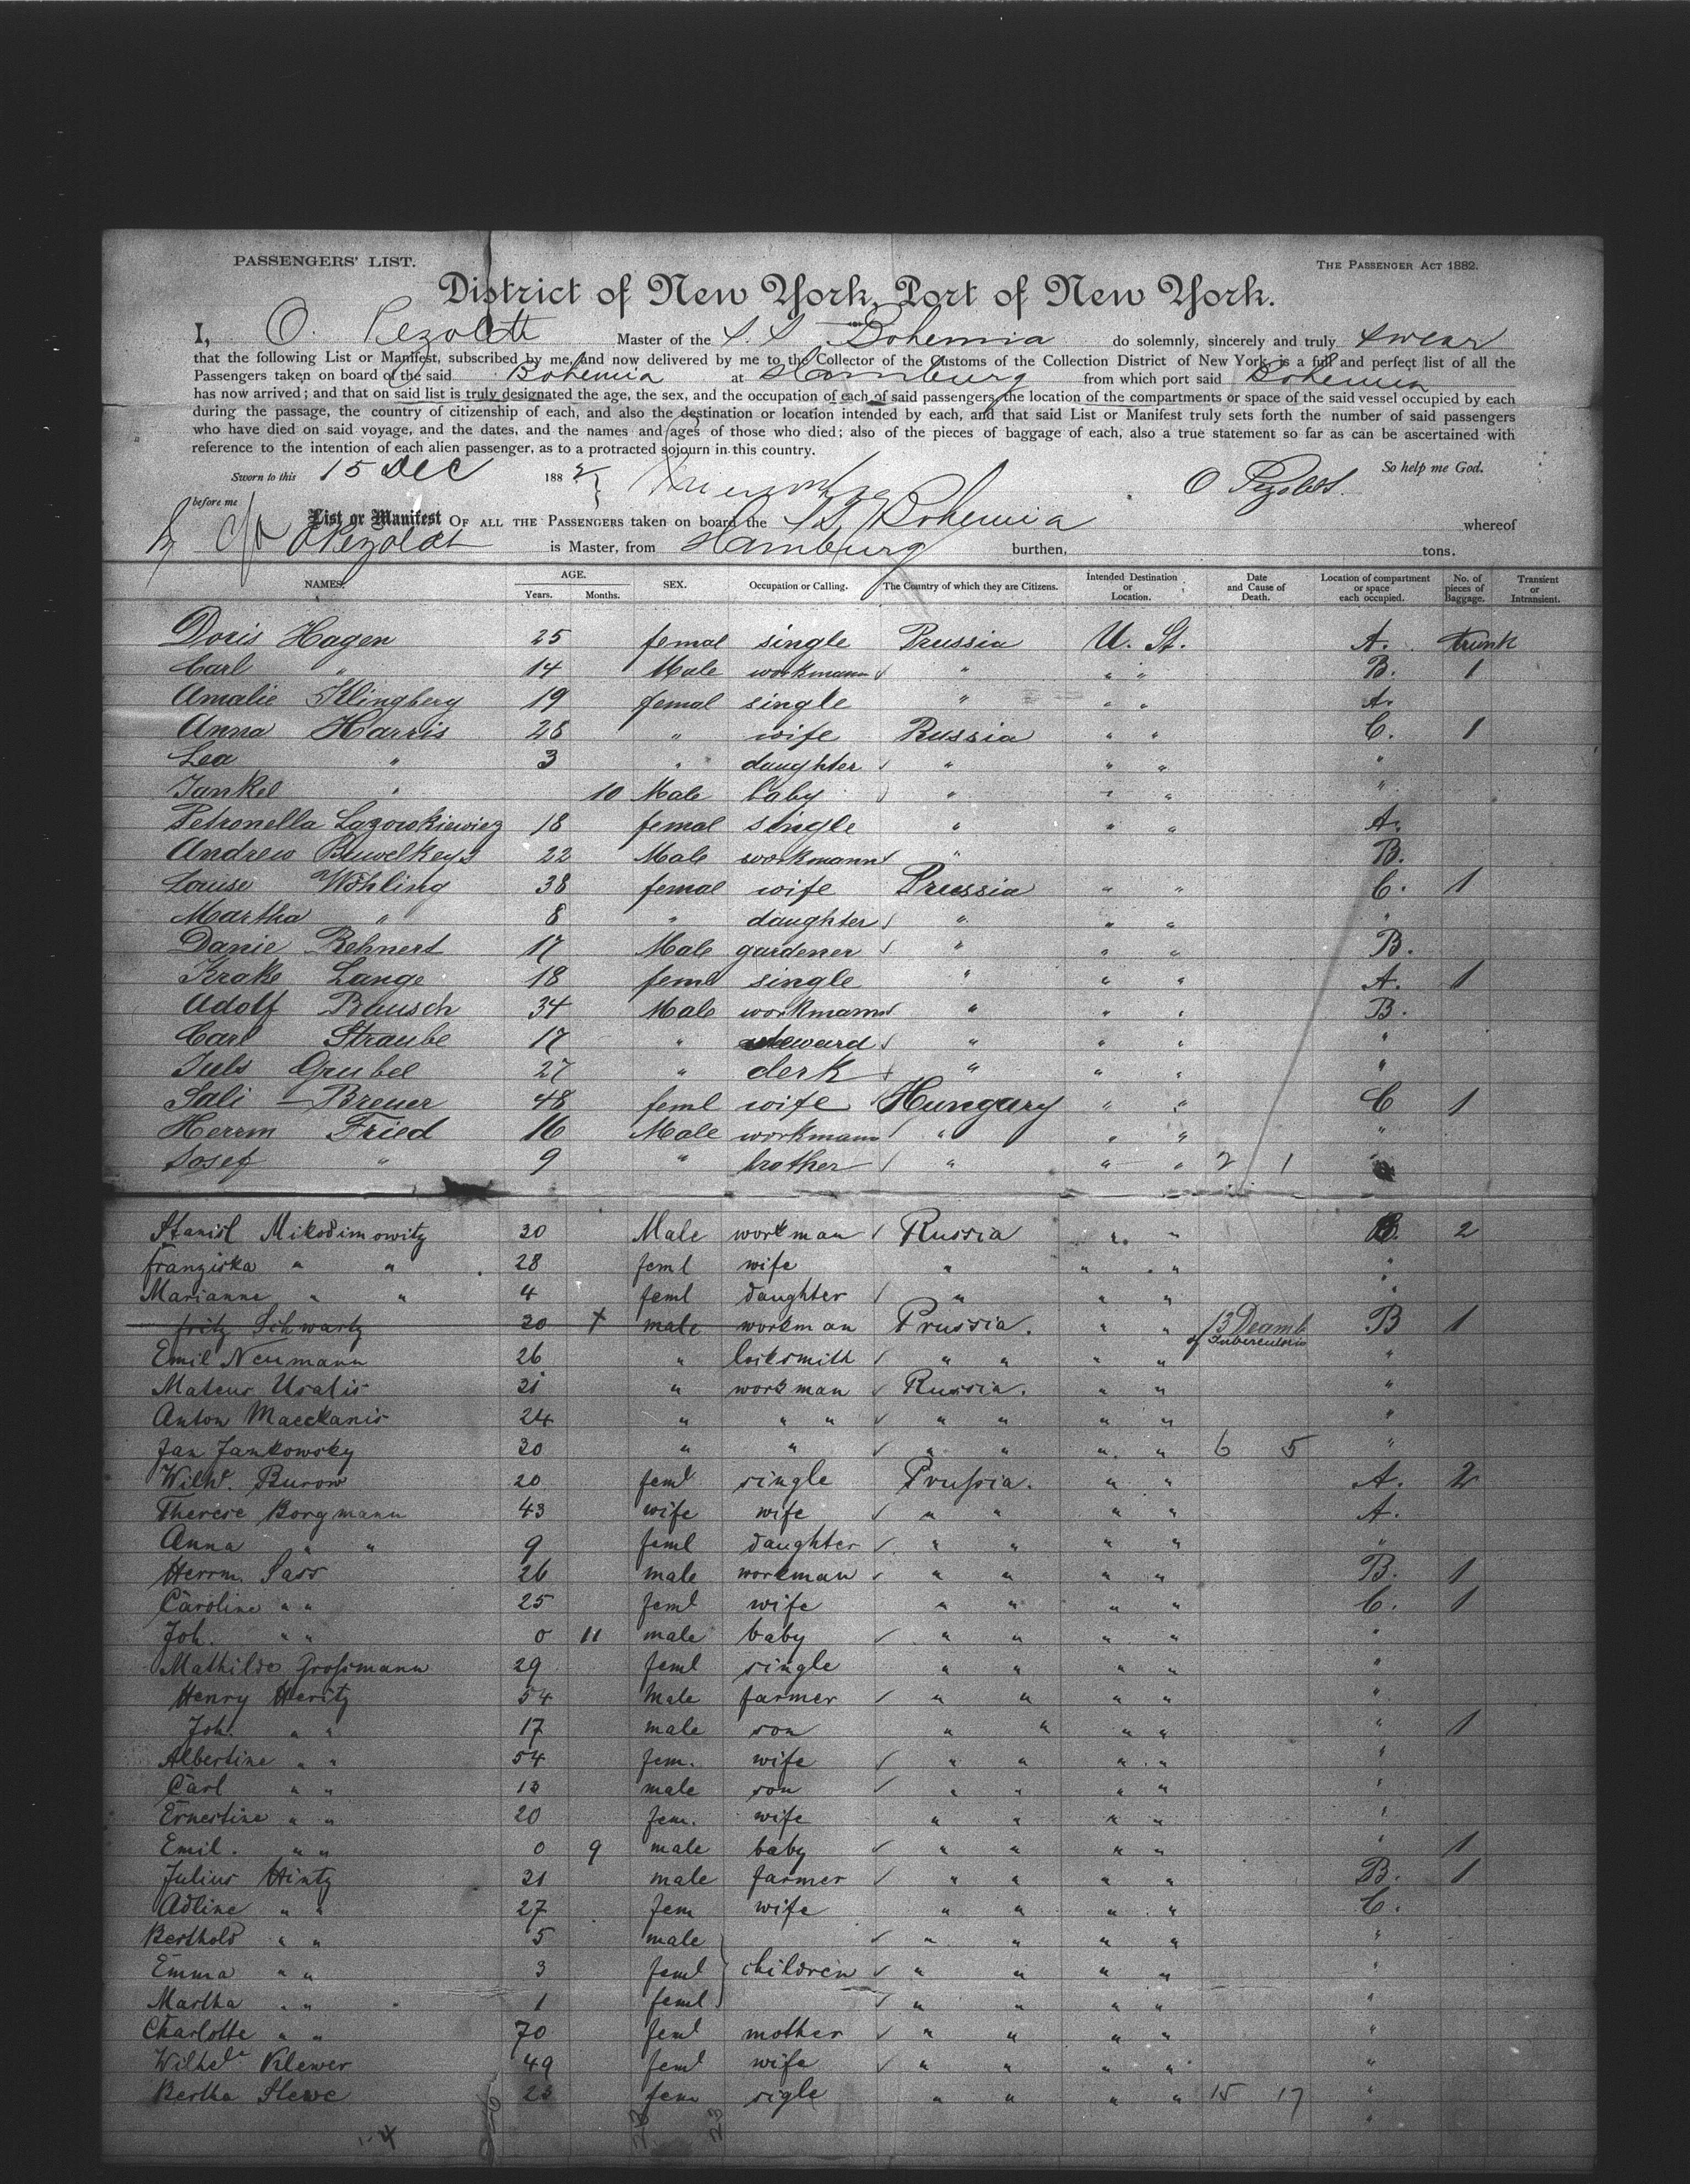 PASSENGERS' LIST.
THE PASSENGER ACT 1882.
District of New York, Port of New York.
I, O. Pezoldt Master of the S. S. Bohemia do solemnly, sincerely and truly swear
that the following List or Manifest, subscribed by me, and now delivered by me to the Collector of the Customs of the Collection District of New York, is a full and perfect list of all the
Passengers taken on board of the said Bohemia at Hamburg from which port said Bohemia
has now arrived; and that on said list is truly designated the age, the sex, and the occupation of each of said passengers, the location of the compartments or space of the said vessel occupied by each
during the passage, the country of citizenship of each, and also the destination or location intended by each, and that said List or Manifest truly sets forth the number of said passengers
who have died on said voyage, and the dates, and the names and ages of those who died; also of the pieces of baggage of each, also a true statement so far as can be ascertained with
reference to the intention of each alien passenger, as to a protracted sojourn in this country.
So help me God.
Sworn to this 15 Dec 188
O Pezoldt.
before me
List or Manifest OF ALL THE PASSENGERS taken on board the SS Bohemia whereof
O Pezoldt is Master, from Hamburg burthen, tons.
NAMES. AGE. Years. Months. SEX. Occupation or Calling. The Country of which they are Citizens. Intended Destination or Location. Date and Cause of Death. Location of compartment or space each occupied. No. of pieces of Baggage. Transient or Intransient.
Doris Hagen 25 femal single Prussia U. St. A. trunk
Carl " 14 Male workmann " " " B. 1
Amalie Klingberg 19 femal single " " " A.
Anna Harris 28 " wife Russia " " C. 1
Lea " 3 " daughter " " " "
Jankel " 10 Male baby " " " "
Petronella Lazowkiewiez 18 femal single " " " A.
Andrew 22 Male workmann " B.
Louise Wöhling 38 femal wife Prussia " " C. 1
Martha " 8 " daughter " " " "
Danie Rehnert 17 Male gardener " " " B.
Krake Lange 18 feml single " " " A. 1
Adolf Bausch 34 Male workmann " " " B.
Carl Straube 17 " steward " " " "
Juls Grubel 27 " clerk " " " "
Sali Breuer 48 feml wife Hungary " " C 1
Herrm Fried 16 Male workmann " " " "
Josef " 9 " brother " " " 2 1
Stanisl Mikodimowitz 30 Male workman Russia " " B. 2
Franziska " " 28 feml wife " " " "
Marianne " " 4 feml daughter " " " "
Fritz Schwartz 20 + male workman Prussia. " " 13 Decemb of Tuberculosis B 1
Emil Neumann 26 " locksmith " " " " "
Mateus Usalis 21 " workman Russia. " " "
Anton Maeckanis 24 " " " " " " " "
Jan Jankowsky 30 " " " " " " 6 5 "
Wilh. Burow 20 feml single Prussia. " " A. 2
Therese Borgmann 43 wife wife " " " " A.
Anna " " 9 feml daughter " " " " "
Herrm. Sass 26 male workman " " " " B. 1
Caroline " " 25 feml wife " " " " C. 1
Joh. " " 0 11 male baby " " " " "
Mathilde Grossmann 29 feml single " " " " "
Henry Heritz 54 Male farmer " " " " "
Joh. " " 17 male son " " " " " 1
Albertine " " 54 fem. wife " " " " "
Carl " " 13 male son " " " " "
Ernestine " " 20 fem. wife " " " " "
Emil. " " 0 9 male baby " " " " " 1
Julius Hintz 31 male farmer " " " " B. 1
Adline " " 27 fem wife " " " " C.
Berthold " " 5 male " " " " "
Emma " " 3 feml children " " " " "
Martha " " 1 feml " " " " "
Charlotte " " 70 feml mother " " " " "
Wilhel Klewer 49 feml wife " " " " "
Bertha Stewe 23 fem sigle " " " " 15 17 "
23 23